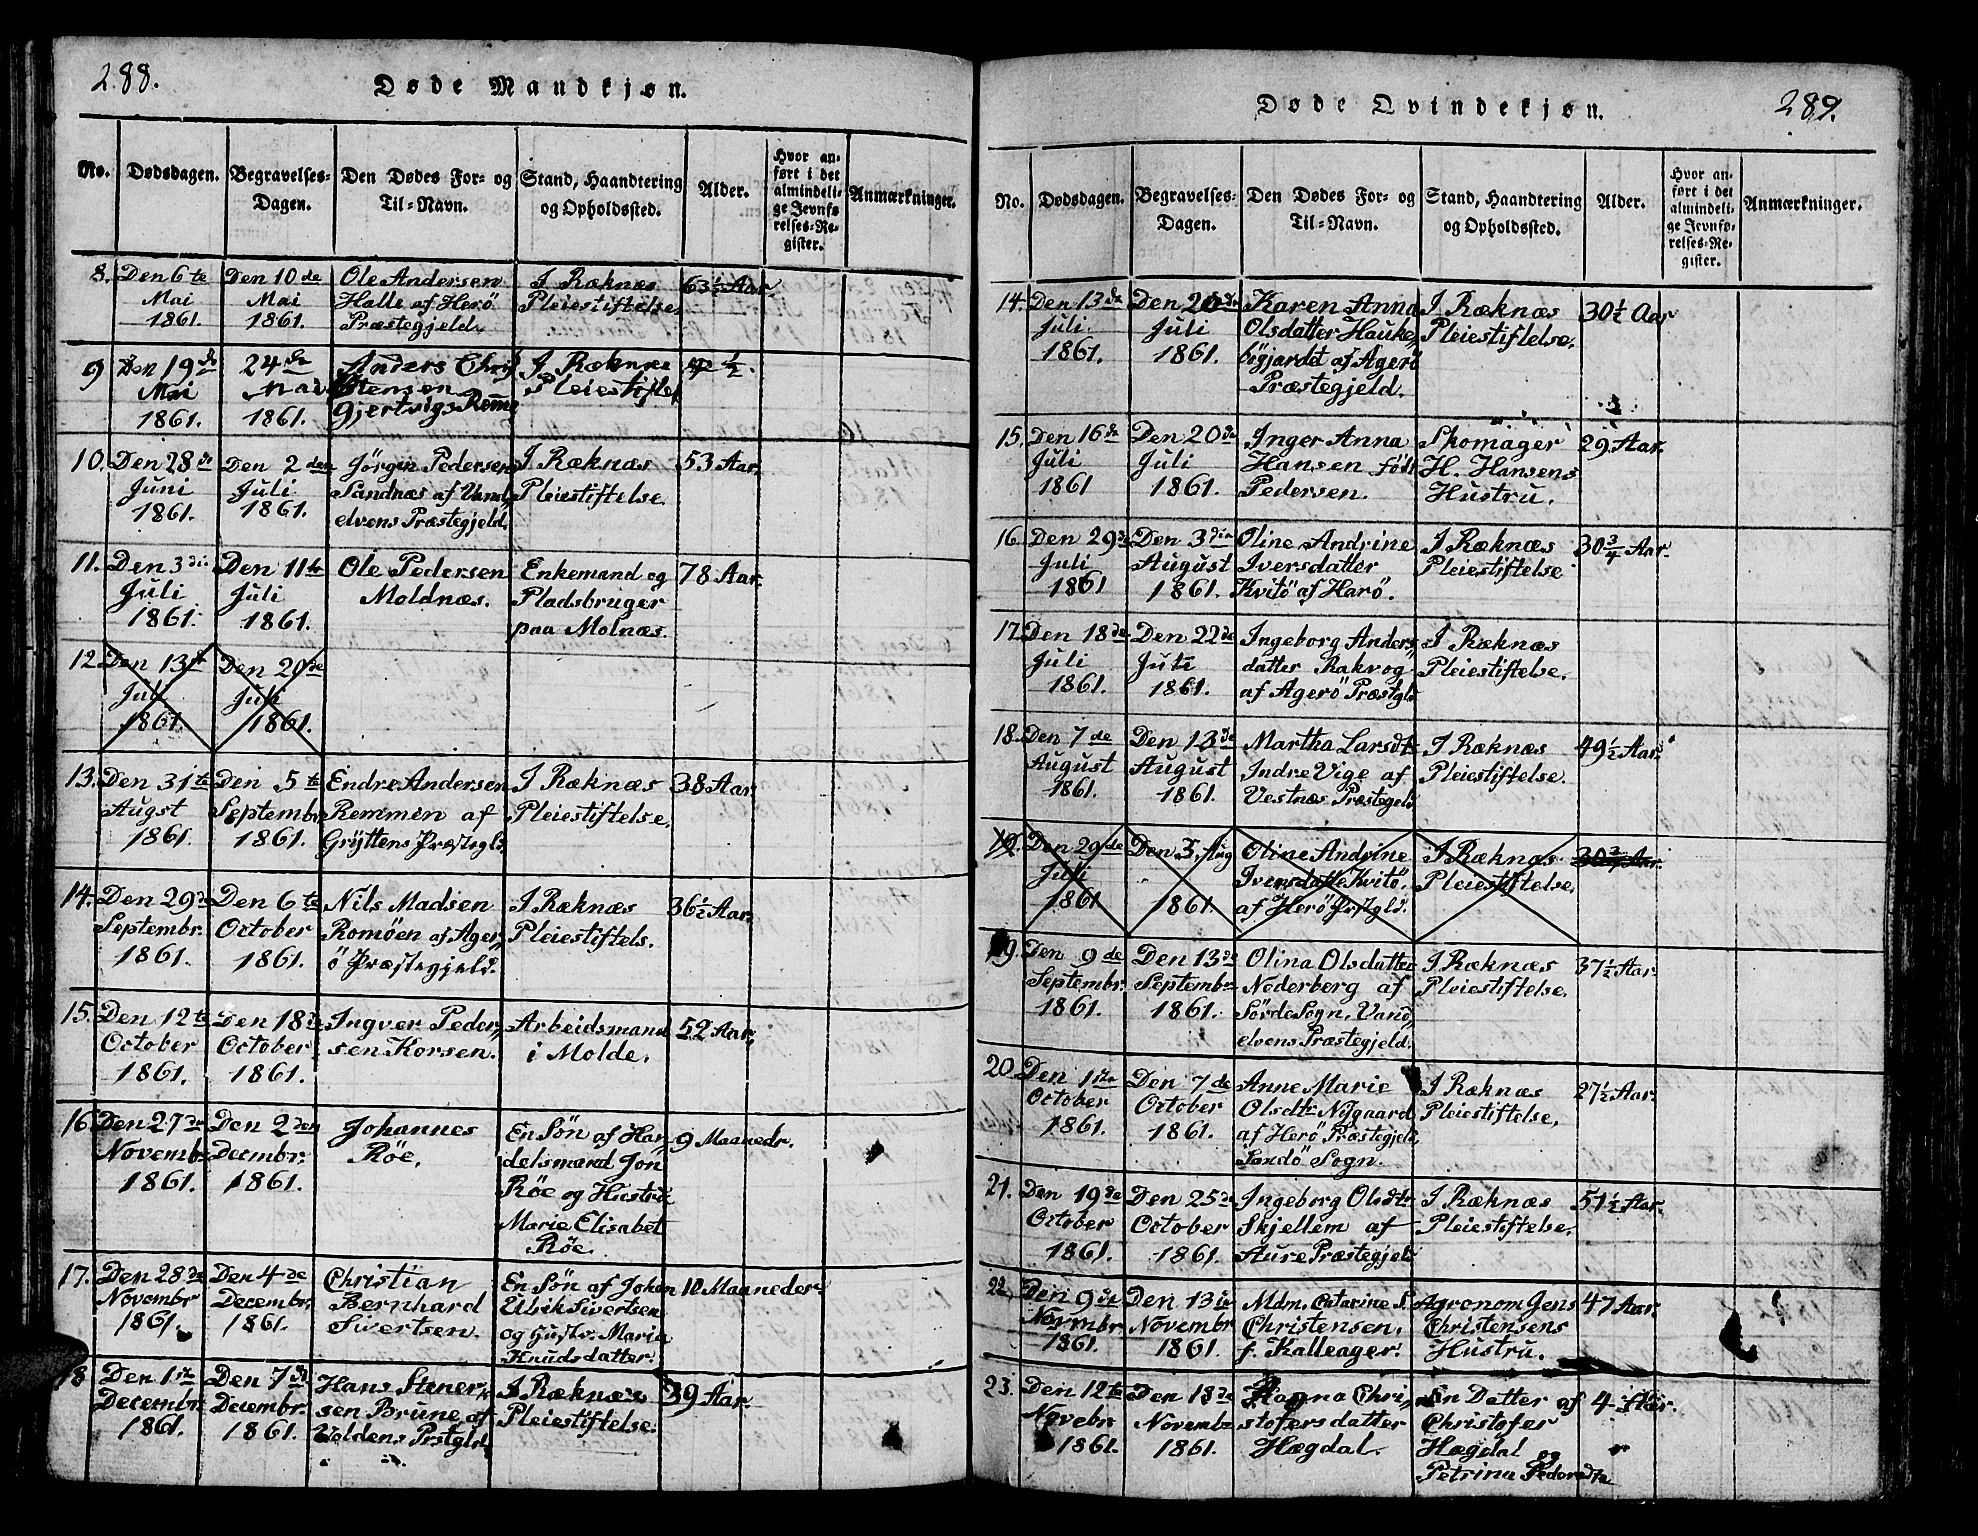 288.
Døde Mandkjøn.
No.
Dødsdagen.
Begravelses-
Dagen.
Den Dødes For- og
Til-Navn.
Stand, Haandtering
og Opholdssted.
Alder.
Hvor an-
ført i det
almindeli-
ge Jevnfø-
relses-Re-
gister.
Anmærkninger.
8. Den 6te Den 10de Ole Andersen I Ræknæs 63½ Aar.
Mai Mai Halle af Herö Pleiestiftelse.
1861. 1861. Præstegjeld.
9 Den 19de 24de Anders Chri I Ræknæs
Mai Mai stensen Pleiestiftel
1861. 1861. Gjertvigs
10. Den 28de Den 2den Jörgen Pedersen I Ræknæs 53 Aar.
Juni Juli Sandnæs af Vand, Pleiestiftelse.
1861. 1861. elvens Præstegjeld.
11. Den 3die Den 11te Ole Pedersen Enkemand og 78 Aar.
Juli Juli Moldnæs. Pladsbruger
1861. 1861. paa Molnæs.
12. Den 13de Den 20de
Juli Juli
1861. 1861.
13. Den 31te Den 5te Endre Andersen I Ræknæs 38 Aar.
Augst Septembr. Remmen af Pleiestiftelse.
1861. 1861. Gryttens Præstegld.
14. Den 29de Den 6te Nils Madsen I Ræknæs 36½ Aar.
Septembr. October Romöen af Ager, Pleiestiftels.
1861. 1861. ö Præstegjeld.
15. Den 12te Den 18de Ingver Peder, Arbeidsmand 52 Aar.
October October sen Korsen. i Molde.
1861. 1861.
16. Den 27de Den 2den Johannes En Sön af Han, 9 Maanedr.
Novembr. Decmbr. Röe. delsmand Jon
1861. 1861. Röe og Hustru
Marie Elisabet
Röe.
17. Den 28de Den 4de Christian En Sön af Johan 10 Maaneder
Novembr Decembr. Bernhard Ulrik Sivertsen
1861. 1861. Sivertsen. og Hustr. Maria
Knudsdatter.
18 Den 1ste Den 7de Hans Stener, I Ræknæs 39 Aar.
Decembr. Decembr. sen Brune af Pleiestiftelse.
1861. 1861. Voldens Prstgld.
289.
Døde Qvindekjøn.
No.
Dødsdagen.
Begravelses-
Dagen.
Den Dødes For- og
Til-Navn.
Stand, Haandtering
og Opholdssted.
Alder.
Hvor an-
ført i det
almindeli-
ge Jevnfø-
relses-Re-
gister.
Anmærkninger.
14. Den 13de Den 20de Karen Anna I Ræknæs 30½ Aar
Juli. Juli Olsdatter Hauke, Pleiestiftelse.
1861. 1861. bögjardet af Agerö
Præstegjeld.
15. Den 16de Den 20de Inger Anna Skomager 29 Aar.
Juli Juli Hansen Födt H. Hansens
1861 1861. Pedersen. Hustru.
16. Den 29de Den 3die Oline Andrine I Ræknæs 30¾ Aar.
Juli August Iversdatter Pleiestiftelse
1861 1861. Kvitö af Harö.
17. Den 18de Den 22de Ingeborg Anders, I Ræknæs
Juli Juli datter Rakvog Pleiestiftelse.
1861. 1861. af Agerö Præstgld
18. Den 7de Den 13de Martha Larsdt. I Ræknæs 49½ Aar.
August August Indre Vige af Pleiestiftelse.
1861. 1861. Vestnæs Præstegld
19. Den 29de Den 3. Aug Oline Andrine I Ræknæs 30¾ Aar.
Juli Iversdatte Kvitö. Pleiestiftelse.
1861 1861. af Herö Prstgld.
19. Den 9de Den 13de Olina Olsdatter I Ræknæs 37½ Aar.
Septembr. Septembr. Nöderberg af Pleiestiftelse.
1861. 1861. Sörde Sogn, Vand,
elvens Præstegjeld.
20. Den 1ste Den 7de Anne Marie I Ræknæs 27½ Aar.
October October Olsdtr Nygaard Pleiestiftelse.
1861. 1861. af Herö Præstegjeld,
Sandö Sogn.
21. Den 19de Den 25de Ingeborg Olsdtr I Ræknæs 51½ Aar.
October October Skjellem af Pleiestiftelse.
1861. 1861. Aure Præstegjeld
22. Den 9de Den 13de Mdm. Catarine S. Agronom Jens 47 Aar.
Novmbr Novembr Christensen. Christensens
1861. 1861. f. Kalleager. Hustru.
23. Den 12te Den 18de Ragna Chri, En Datter af 4 Aar.
Novebr. Novembr stofersdatter Christofer
1861. 1861. Hægdal. Hægdal og
Petrina